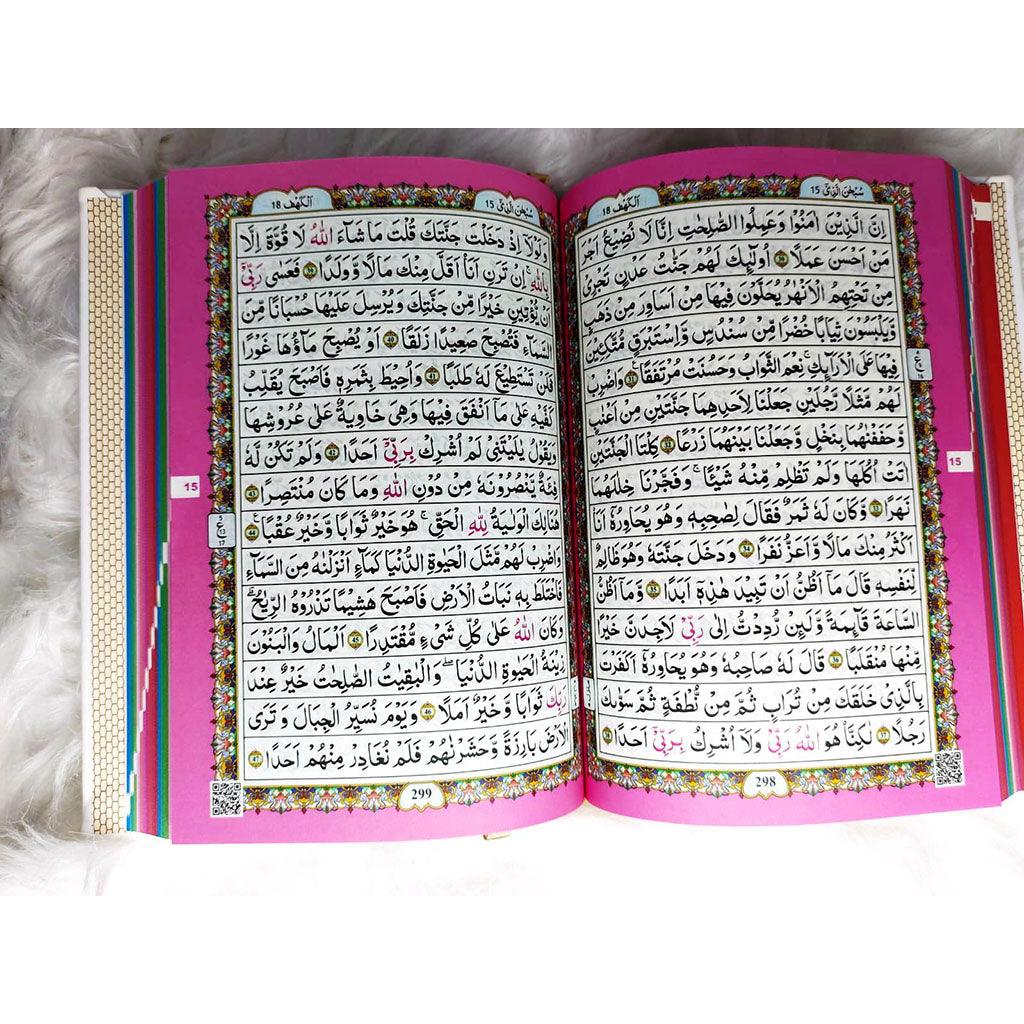 سُبْحٰنَ الَّذِیْٓ 15
اَلْكَهْف 18
اِنَّ الَّذِیْنَ اٰمَنُوْا وَعَمِلُوا الصّٰلِحٰتِ اِنَّا لَا نُضِیْعُ اَجْرَ
مَنْ اَحْسَنَ عَمَلًاۚ ۝30 اُولٰٓئِكَ لَهُمْ جَنّٰتُ عَدْنٍ تَجْرِیْ
مِنْ تَحْتِهِمُ الْاَنْهٰرُ یُحَلَّوْنَ فِیْهَا مِنْ اَسَاوِرَ مِنْ ذَهَبٍ
وَّیَلْبَسُوْنَ ثِیَابًا خُضْرًا مِّنْ سُنْدُسٍ وَّاِسْتَبْرَقٍ مُّتَّكِـِٕیْنَ
فِیْهَا عَلَى الْاَرَآىِٕكِؕ نِعْمَ الثَّوَابُؕ وَحَسُنَتْ مُرْتَفَقًا ۝31 وَاضْرِبْ
لَهُمْ مَّثَلًا رَّجُلَیْنِ جَعَلْنَا لِاَحَدِهِمَا جَنَّتَیْنِ مِنْ اَعْنَابٍ
وَّحَفَفْنٰهُمَا بِنَخْلٍ وَّجَعَلْنَا بَیْنَهُمَا زَرْعًاؕ ۝32 كِلْتَا الْجَنَّتَیْنِ
اٰتَتْ اُكُلَهَا وَلَمْ تَظْلِمْ مِّنْهُ شَیْـًٔاۙ وَّفَجَّرْنَا خِلٰلَهُمَا
نَهَرًاۙ ۝33 وَّكَانَ لَهٗ ثَمَرٌۚ فَقَالَ لِصَاحِبِهٖ وَهُوَ یُحَاوِرُهٗٓ اَنَا
اَكْثَرُ مِنْكَ مَالًا وَّاَعَزُّ نَفَرًا ۝34 وَدَخَلَ جَنَّتَهٗ وَهُوَ ظَالِمٌ
لِّنَفْسِهٖۚ قَالَ مَاۤ اَظُنُّ اَنْ تَبِیْدَ هٰذِهٖۤ اَبَدًاۙ ۝35 وَّمَاۤ اَظُنُّ
السَّاعَةَ قَآىِٕمَةًۙ وَّلَىِٕنْ رُّدِدْتُّ اِلٰى رَبِّیْ لَاَجِدَنَّ خَیْرًا
مِّنْهَا مُنْقَلَبًاۚ ۝36 قَالَ لَهٗ صَاحِبُهٗ وَهُوَ یُحَاوِرُهٗۤ اَكَفَرْتَ
بِالَّذِیْ خَلَقَكَ مِنْ تُرَابٍ ثُمَّ مِنْ نُّطْفَةٍ ثُمَّ سَوّٰىكَ
رَجُلًاؕ ۝37 لٰكِنَّا۠ هُوَ اللّٰهُ رَبِّیْ وَلَاۤ اُشْرِكُ بِرَبِّیْۤ اَحَدًا ۝38
15
298
سُبْحٰنَ الَّذِیْٓ 15
اَلْكَهْف 18
وَلَوْلَاۤ اِذْ دَخَلْتَ جَنَّتَكَ قُلْتَ مَا شَآءَ اللّٰهُۙ لَا قُوَّةَ اِلَّا
بِاللّٰهِۚ اِنْ تَرَنِ اَنَا اَقَلَّ مِنْكَ مَالًا وَّوَلَدًاۚ ۝39 فَعَسٰى رَبِّیْۤ
اَنْ یُّؤْتِیَنِ خَیْرًا مِّنْ جَنَّتِكَ وَیُرْسِلَ عَلَیْهَا حُسْبَانًا مِّنَ
السَّمَآءِ فَتُصْبِحَ صَعِیْدًا زَلَقًاۙ ۝40 اَوْ یُصْبِحَ مَآؤُهَا غَوْرًا
فَلَنْ تَسْتَطِیْعَ لَهٗ طَلَبًا ۝41 وَاُحِیْطَ بِثَمَرِهٖ فَاَصْبَحَ یُقَلِّبُ
كَفَّیْهِ عَلٰى مَاۤ اَنْفَقَ فِیْهَا وَهِیَ خَاوِیَةٌ عَلٰى عُرُوْشِهَا
وَیَقُوْلُ یٰلَیْتَنِیْ لَمْ اُشْرِكْ بِرَبِّیْۤ اَحَدًا ۝42 وَلَمْ تَكُنْ لَّهٗ
فِئَةٌ یَّنْصُرُوْنَهٗ مِنْ دُوْنِ اللّٰهِ وَمَا كَانَ مُنْتَصِرًاؕ ۝43
هُنَالِكَ الْوَلَایَةُ لِلّٰهِ الْحَقِّؕ هُوَ خَیْرٌ ثَوَابًا وَّخَیْرٌ عُقْبًا ۝44
وَاضْرِبْ لَهُمْ مَّثَلَ الْحَیٰوةِ الدُّنْیَا كَمَآءٍ اَنْزَلْنٰهُ مِنَ السَّمَآءِ
فَاخْتَلَطَ بِهٖ نَبَاتُ الْاَرْضِ فَاَصْبَحَ هَشِیْمًا تَذْرُوْهُ الرِّیٰحُؕ
وَكَانَ اللّٰهُ عَلٰى كُلِّ شَیْءٍ مُّقْتَدِرًا ۝45 اَلْمَالُ وَالْبَنُوْنَ
زِیْنَةُ الْحَیٰوةِ الدُّنْیَاۚ وَالْبٰقِیٰتُ الصّٰلِحٰتُ خَیْرٌ عِنْدَ
رَبِّكَ ثَوَابًا وَّخَیْرٌ اَمَلًا ۝46 وَیَوْمَ نُسَیِّرُ الْجِبَالَ وَتَرَى
الْاَرْضَ بَارِزَةًۙ وَّحَشَرْنٰهُمْ فَلَمْ نُغَادِرْ مِنْهُمْ اَحَدًاۚ ۝47
15
5
ع
13
17
299